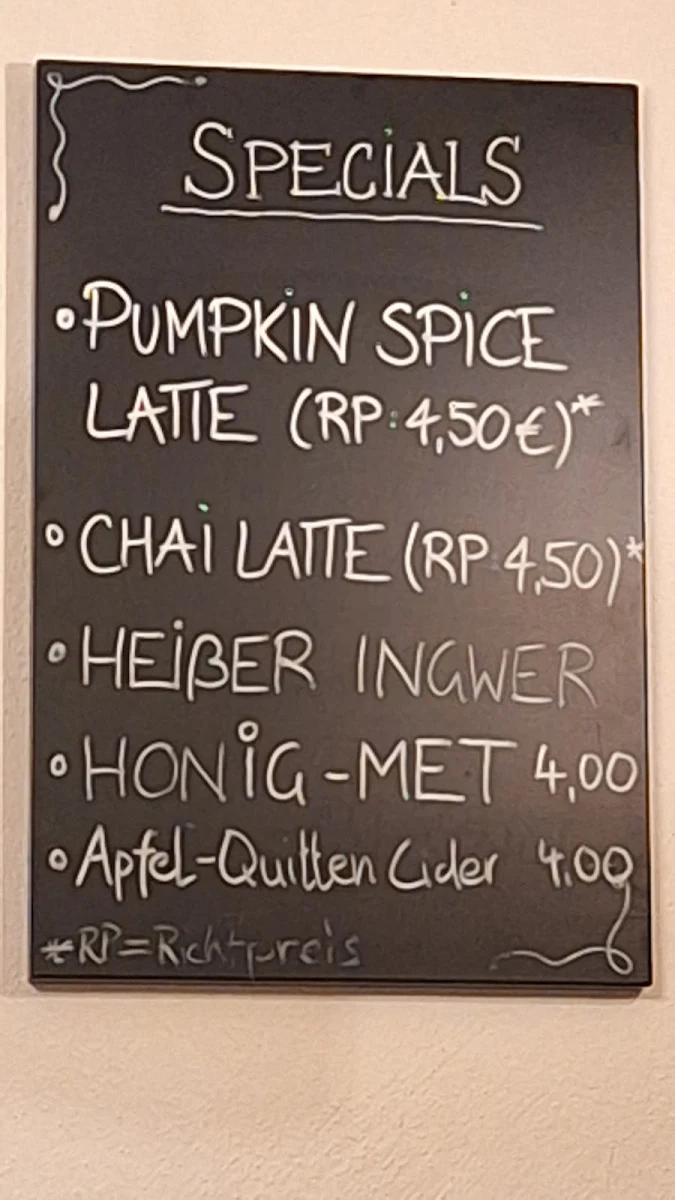 SPECiALS
• PUMPKiN SPiCE
LATTE (RP: 4,50€)*
• CHAi LATTE (RP 4,50)*
• HEißER INGWER
• HONiG-MET 4,00
• Apfel-Quitten Cider 4.00
*RP=Richtpreis